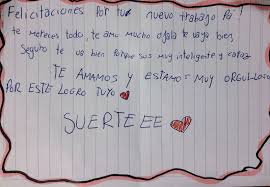 Felicitaciones Por tu nuevo trabajo Pá!
te mereces todo, te amo mucho ojala te vaya bien,
Seguro te va bien Porque sos muy inteligente y capaz
TE AMAMOS Y ESTAMOS MUY ORGULLOSOS
POR ESTE LOGRO TUYO
SUERTEEE